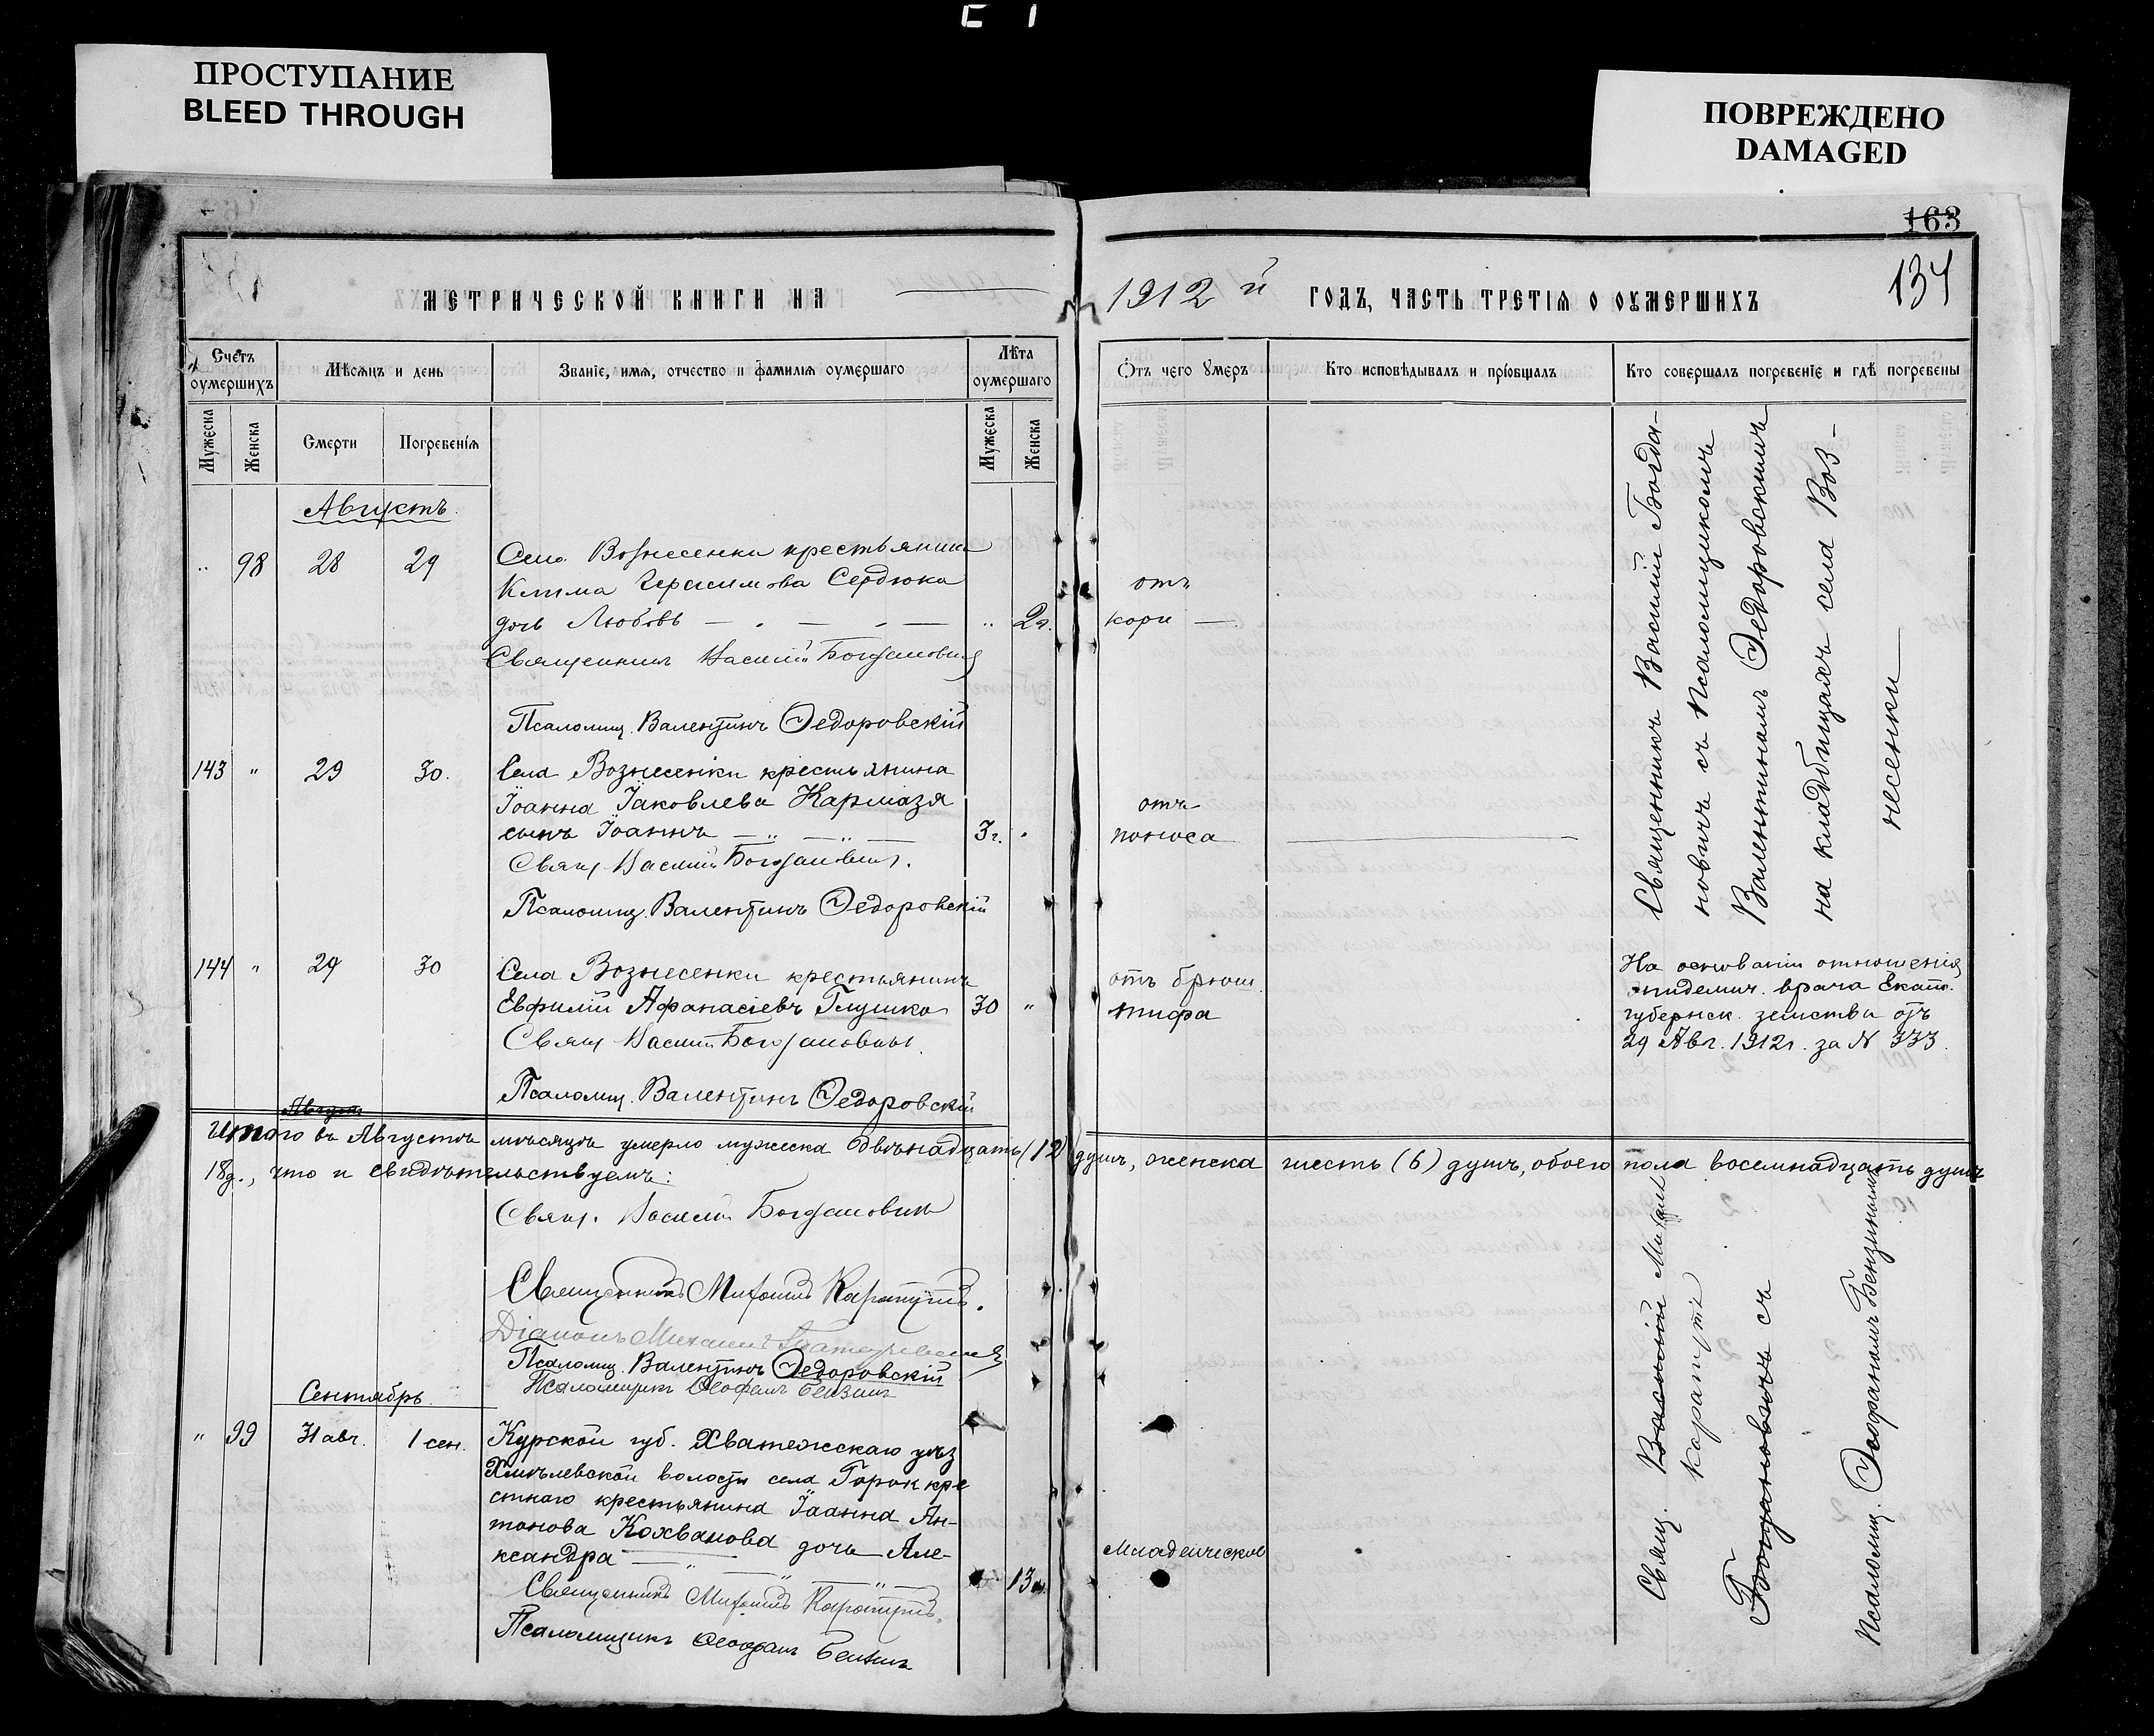 ПРОСТУПАНИЕ
BLEED THROUGH
ПОВРЕЖДЕНО
DAMAGED
163
134
МЕТРИЧЕСКОЙ КНИГИ НА
1912 й ГОДЪ, ЧАСТЬ ТРЕТІЯ О ОУМЕРШИХЪ
Счетъ оумершихъ
Мѣсяцъ и день
Званіе, имя, отчество и фамилія оумершаго
Лѣта оумершаго
Отъ чего умеръ
Кто исповѣдывалъ и пріобщалъ
Кто совершалъ погребеніе и гдѣ погребены
Мужеска
Женска
Смерти
Погребенія
Мужеска
Женска
Августъ.
" 98 28 29
Села Вознесенки крестьянина
Клима Герасимова Сердюка
дочь Любовь " 2г.
отъ
кори
Священникъ Василій Богдановичъ
Псаломщ. Валентинъ Ѳедоровскій
143 " 29 30.
Села Вознесенки крестьянина
Іоанна Іаковлева Кармазя
сынъ Іоаннъ 3г. "
отъ
поноса
Свящ. Василій Богдановичъ.
Псаломщ. Валентинъ Ѳедоровскій
Священникъ Василій Богда-
новичъ съ Псаломщикомъ
Валентиномъ Ѳедоровскимъ
на кладбищахъ села Воз-
несенки
144 " 29 30
Села Вознесенки крестьянинъ
Евфимій Аѳанасіевъ Глушко 30 "
отъ брюш.
тифа
Свящ. Василій Богдановичъ.
Псаломщ. Валентинъ Ѳедоровскій
На основаніи отношенія
эпидемич. врача Екат.
губернск. земства отъ
29 Авг. 1912г. за N 333.
Августъ
Итого въ Августѣ мѣсяцѣ умерло мужеска двѣнадцать (12) душъ, женска шесть (6) душъ, обоего пола восемнадцать душъ
18д., что и свидѣтельствуемъ:
Свящ. Василій Богдановичъ
Священникъ Михаилъ Карапутъ.
Діаконъ Михаилъ
Псаломщ. Валентинъ Ѳедоровскій
Псаломщикъ Ѳеофанъ Бензинъ
Сентябрь.
" 99 31 авг. 1 сен.
Курской губ. Хватежскаго уѣз
Хмѣлевской волости села Горок кре
стнаго крестьянина Іоанна Ан-
тонова Кохванова дочь Але-
ксандра 13
Младенческой
Священникъ Михаилъ Карапутъ.
Псаломщикъ Ѳеофанъ Бензинъ
Свящ. Василій Михаилъ
Карапутъ
Богдановичъ съ
Псаломщ. Ѳеофаномъ Бензинымъ